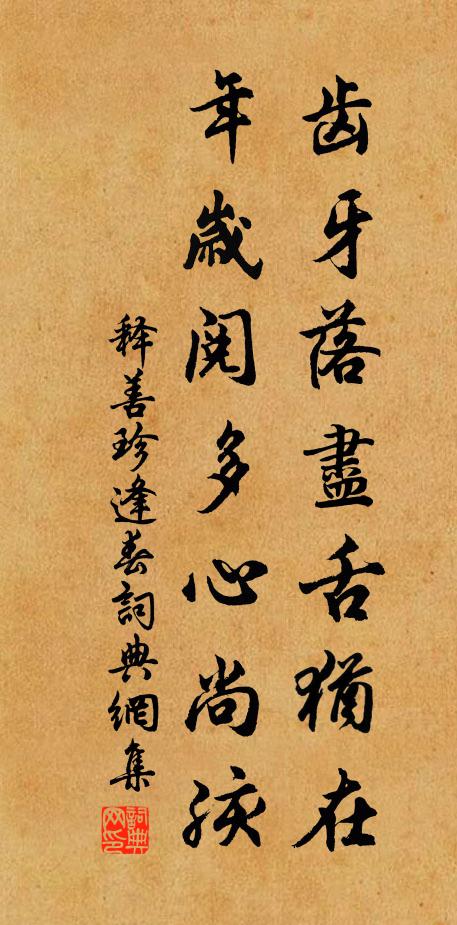 齿牙落盡舌猶在
年歲閱多心尚孩
释善珍逢春詞典網集
詞典网印